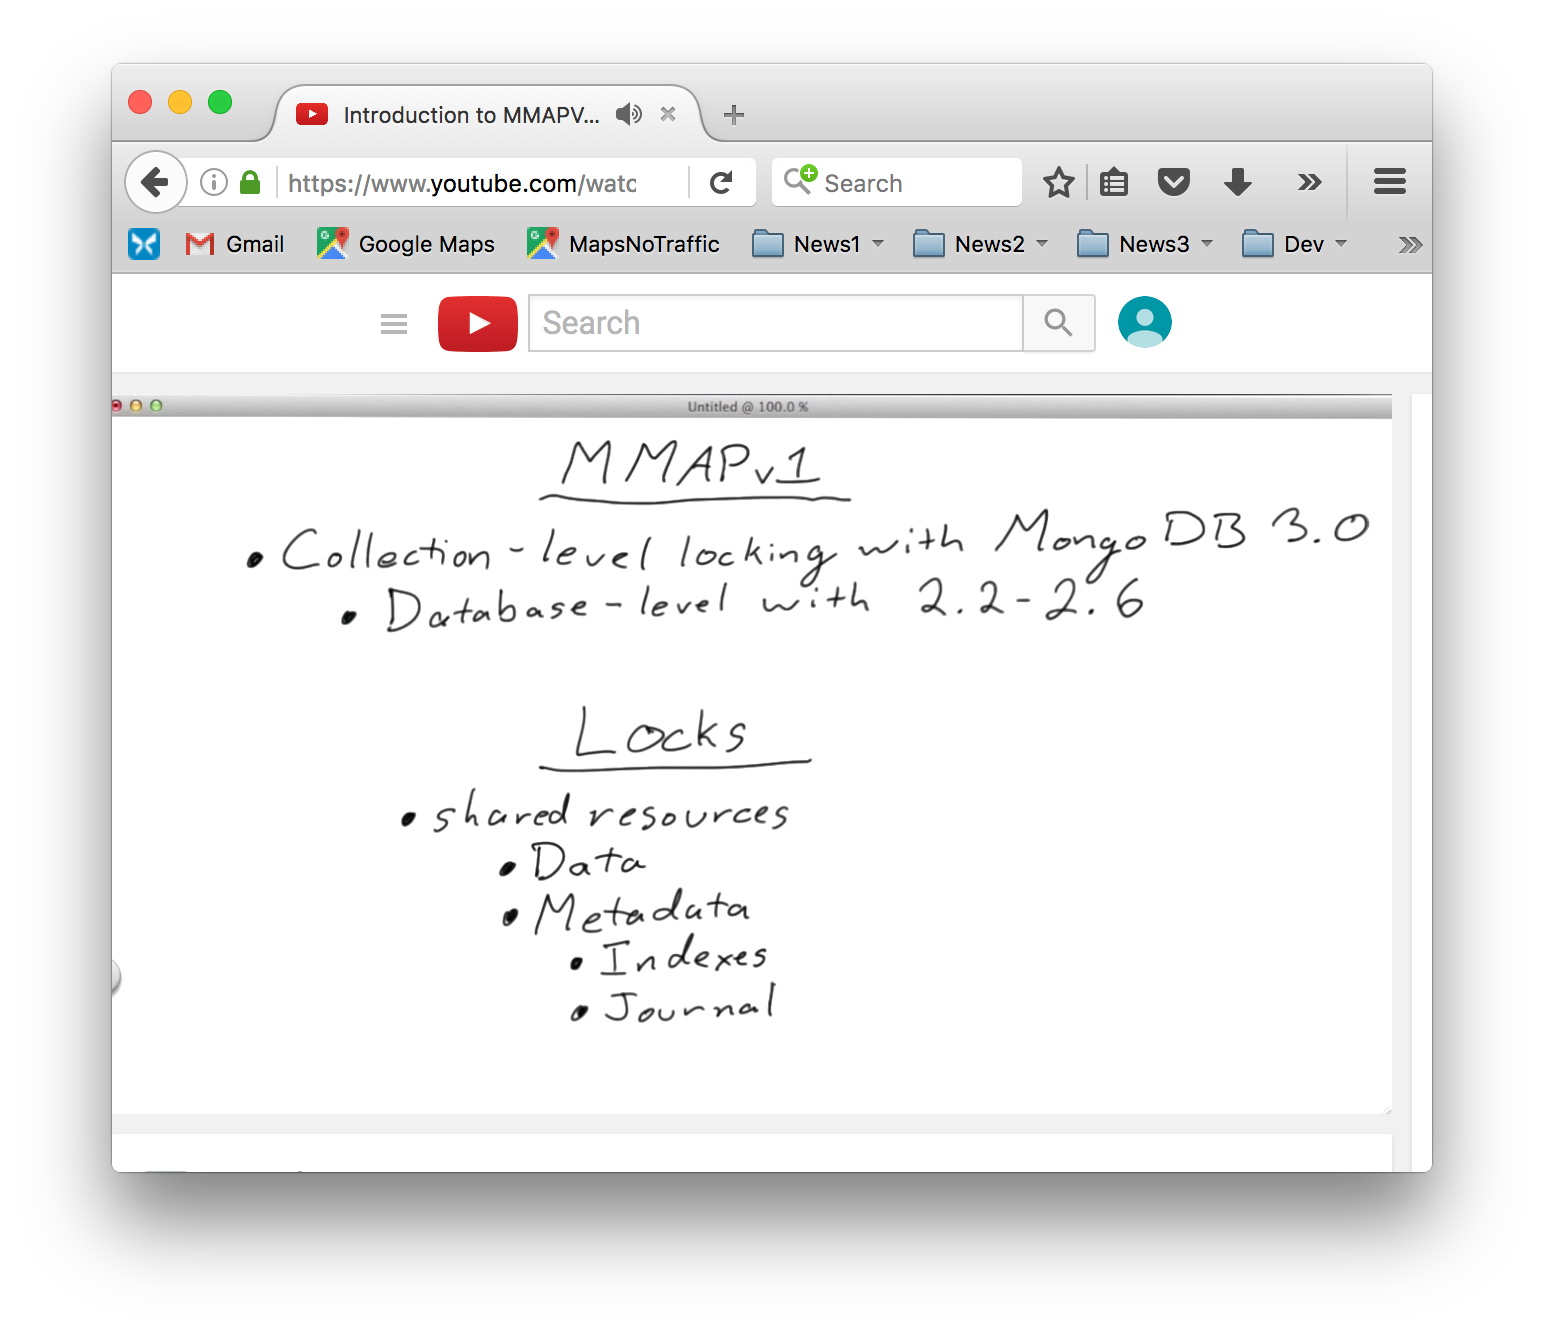 Introduction to MMAPV...
https://www.youtube.com/watc
Search
Gmail
Google Maps
MapsNoTraffic
News1
News2
News3
Dev
Search
Untitled @ 100.0 %
MMAPv1
• Collection-level locking with MongoDB 3.0
• Database-level with 2.2-2.6
Locks
• shared resources
• Data
• Metadata
• Indexes
• Journal